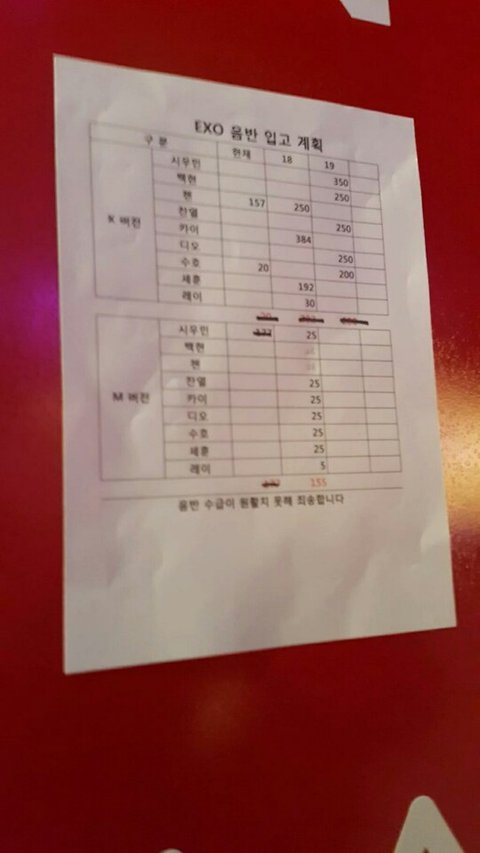 EXO 음반 입고 계획
구 분 현재 18 19
K 버전
시우민 350
백현 250
첸 157 250
찬열 250
카이 384
디오 250
수호 20 200
세훈 192
레이 30
M 버전
시우민 177 25
백현
첸
찬열 25
카이 25
디오 25
수호 25
세훈 25
레이 5
155
음반 수급이 원활치 못해 죄송합니다